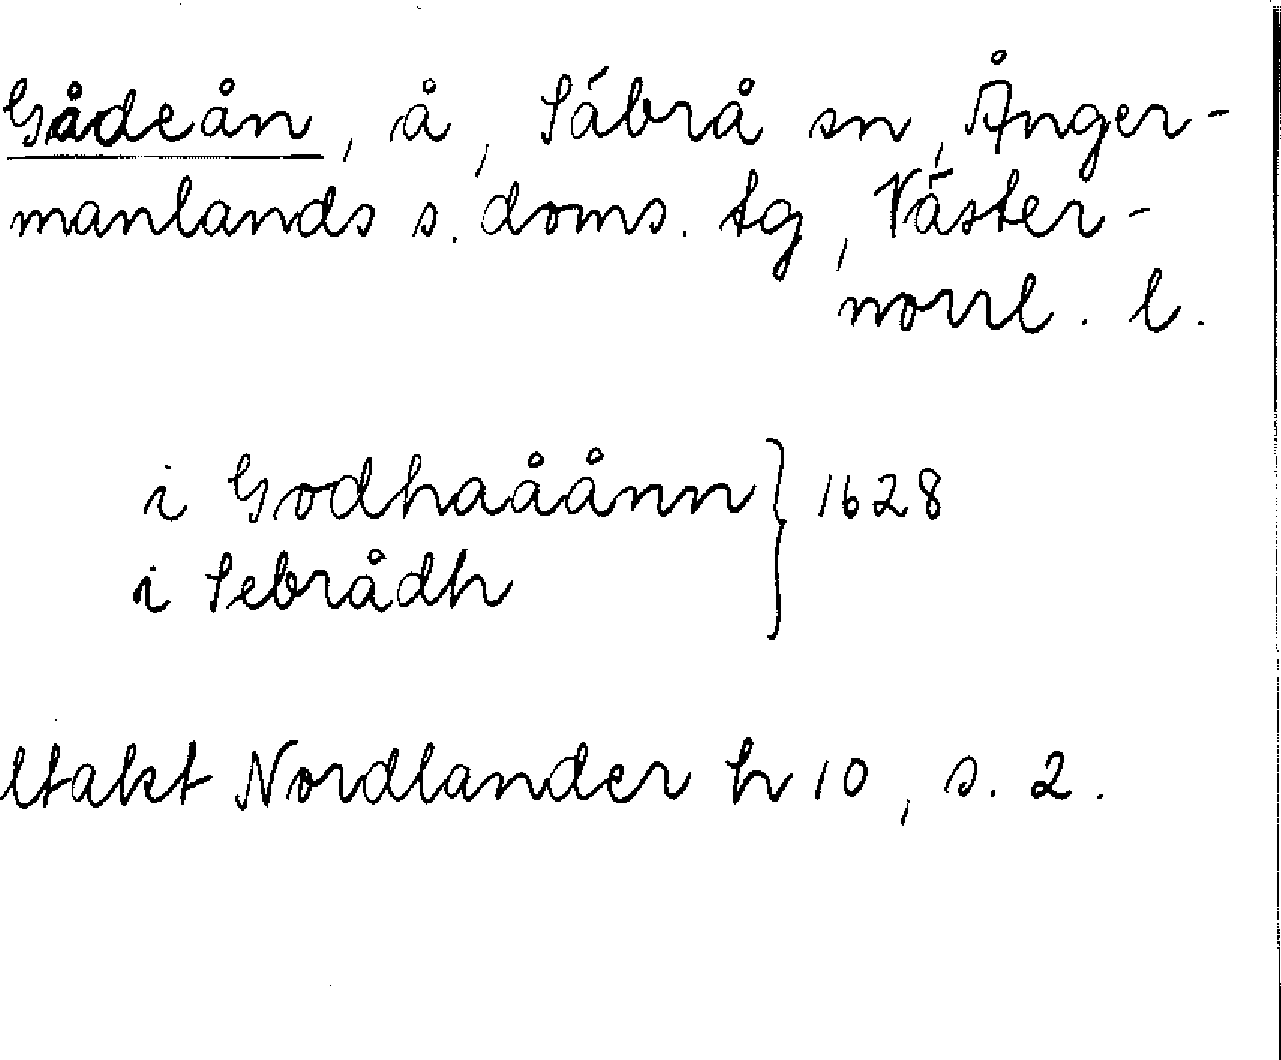 Gådeån, å, Säbrå sn, Ånger-
manlands s. doms. tg, Väster-
norrl. l.
i Godhaåånn } 1628
i Sebrådh
Utakt Nordlander h 10, s. 2.